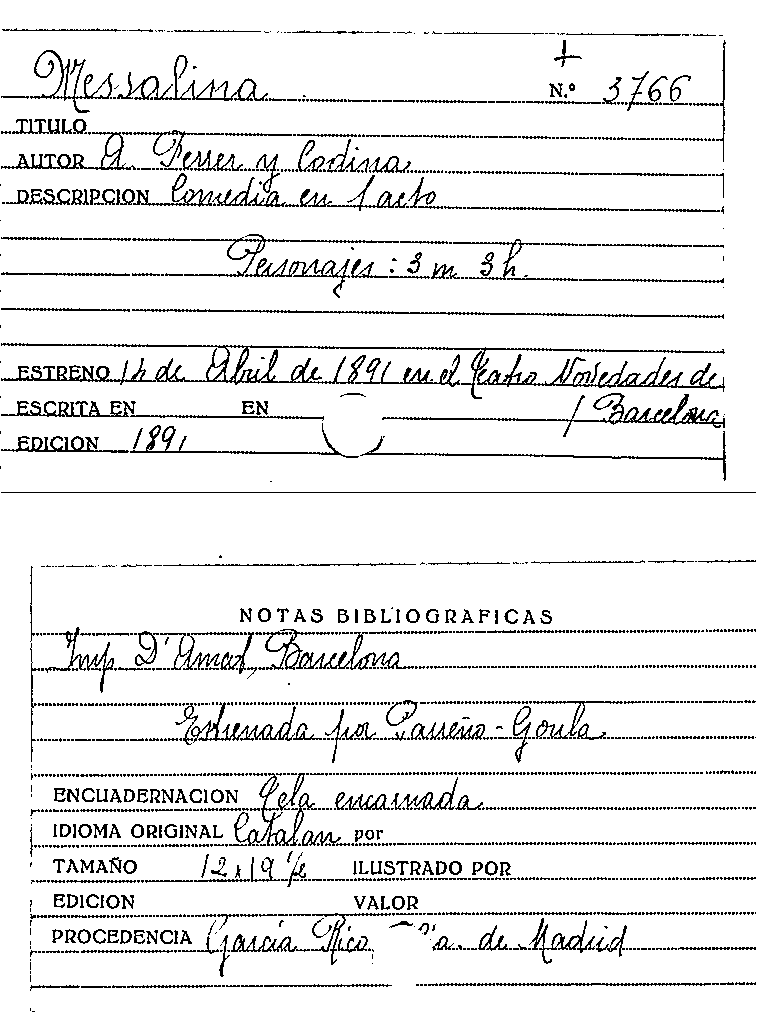 Messalina
N.º 3766
TITULO
AUTOR A. Ferrer y Codina
DESCRIPCION Comedia en 1 acto
Personajes: 3 m 3 h.
ESTRENO de Abril de 1891 en el Teatro Novedades de
ESCRITA EN EN / Barcelona
EDICION 1891
NOTAS BIBLIOGRAFICAS
Imp. D'Amat, Barcelona
Estrenada por Parreño-Goula
ENCUADERNACION Tela encarnada
IDIOMA ORIGINAL Catalan por
TAMAÑO 12x19 ILUSTRADO POR
EDICION VALOR
PROCEDENCIA García Rico de Madrid